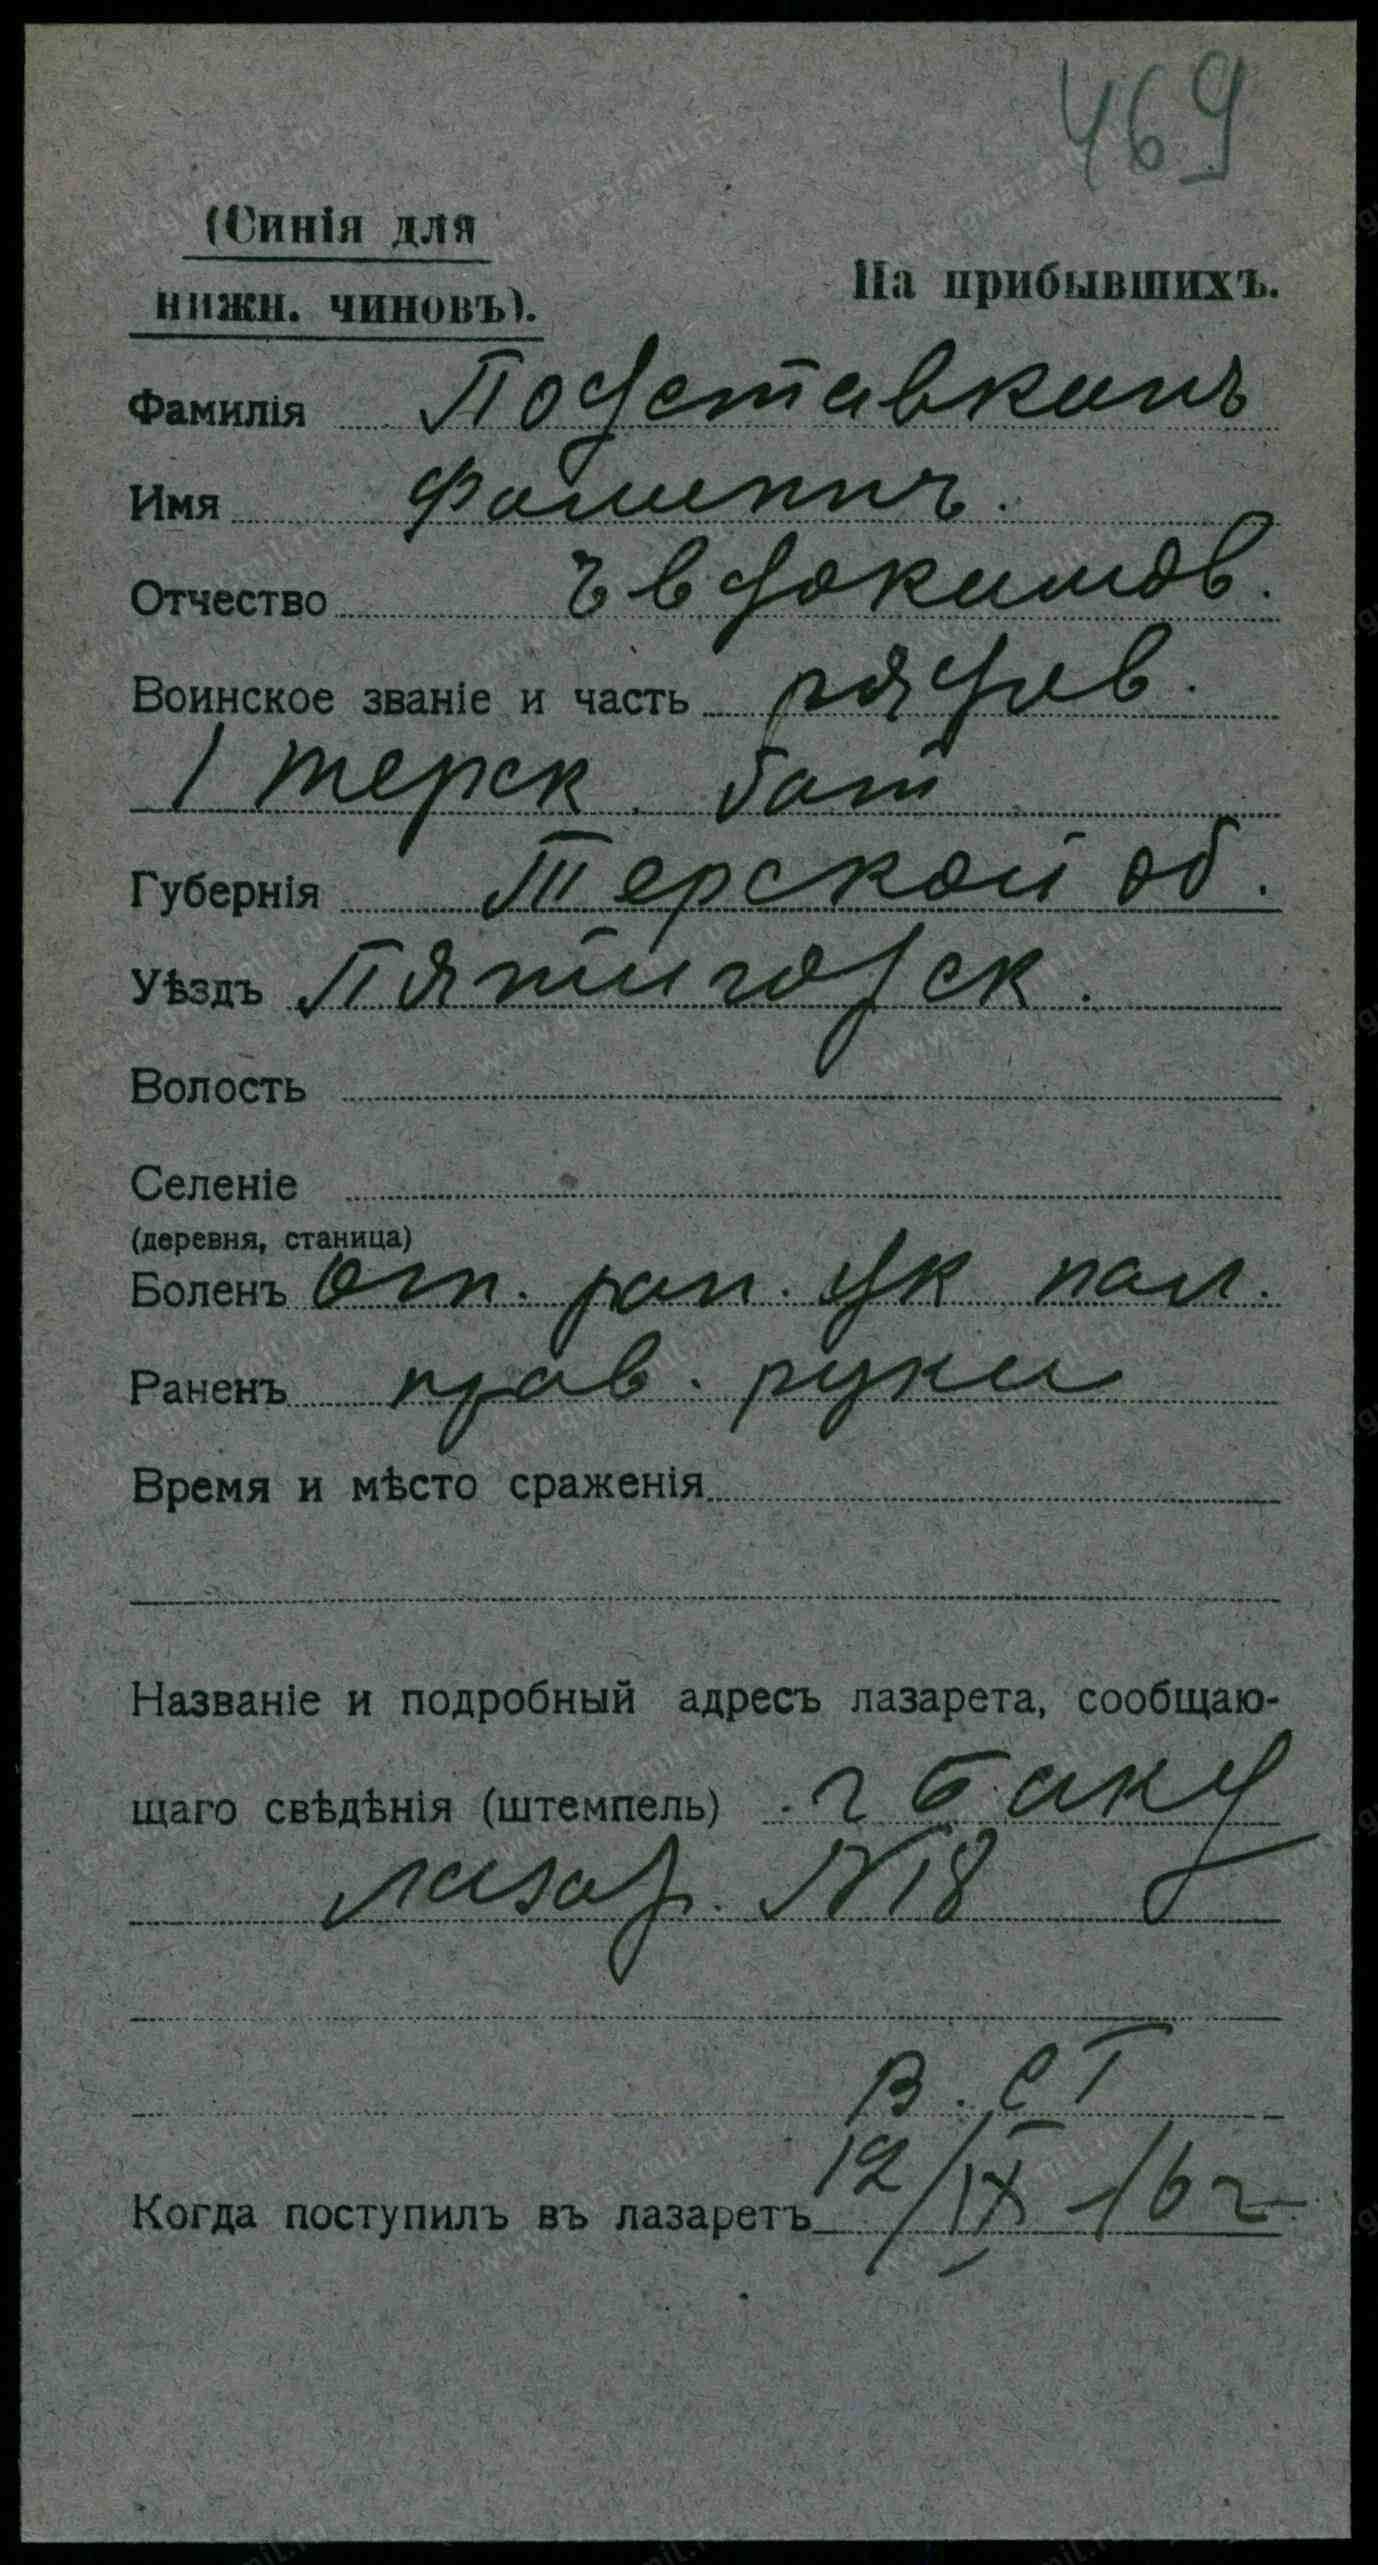 469
(Синія для
нижн. чиновъ).
На прибывшихъ.
Фамилія Подставкинъ
Имя
Отчество Евдокимов.
Воинское званіе и часть рядов.
1 терск. бат
Губернія Терской об.
Уѣздъ Пятигорск.
Волость
Селеніе
(деревня, станица)
Боленъ Огн. ран. ук пал.
Раненъ прав. руки
Время и мѣсто сраженія
Названіе и подробный адресъ лазарета, сообщаю-
щаго свѣдѣнія (штемпель) г Баку
лазар. N18
В. СТ
Когда поступилъ въ лазаретъ 12/IX 16 г